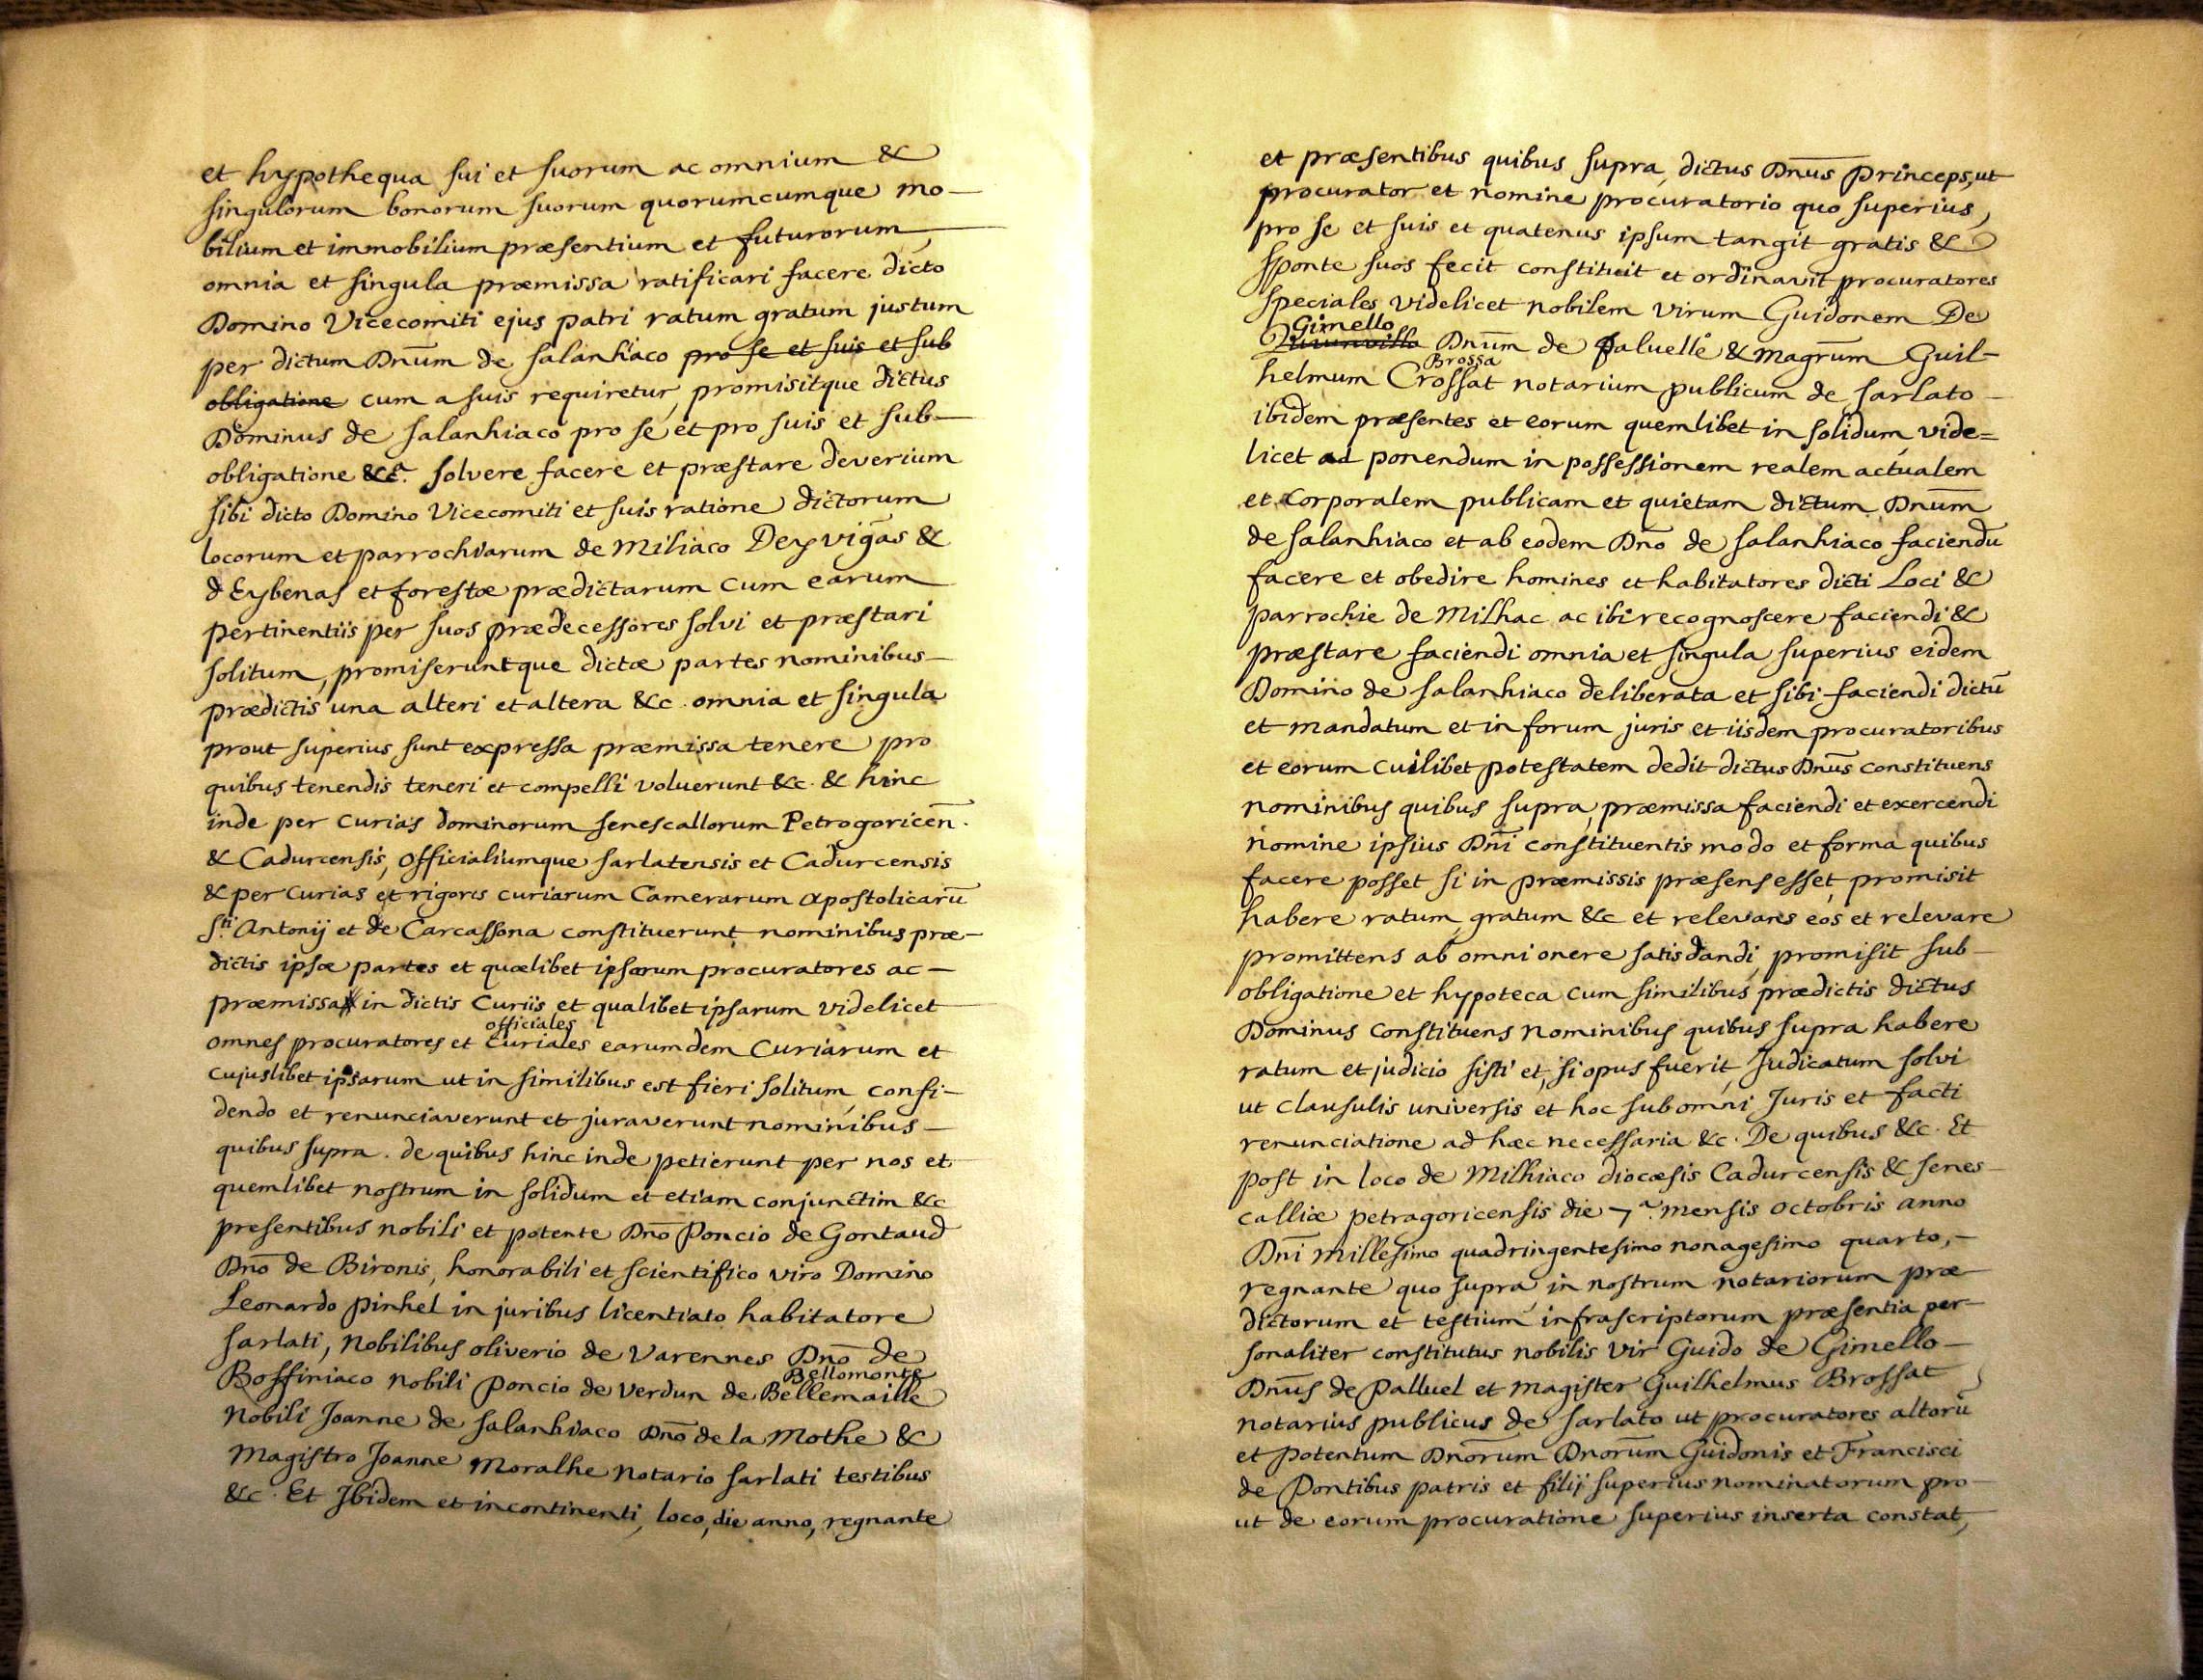 et hypothequa sui et suorum ac omnium &
singulorum bonorum suorum quorumcumque mo-
bilium et immobilium præsentium et futurorum,
omnia et singula præmissa ratificari facere dicto
Domino Vicecomiti ejus patri ratum gratum justum
per dictum Dnūm de Salanhiaco pro se et suis et sub
obligatione cum a suis requiretur, promisitque dictus
Dominus de Salanhiaco pro se et pro suis et sub-
obligatione &cª. solvere facere et præstare deverium
sibi dicto Domino Vicecomiti et suis ratione dictorum
locorum et parrochiarum de Miliaco Deyvigās &
d'Eybenas et forestæ prædictarum cum earum
pertinentiis per suos prædecessores solvi et præstari
solitum, promiseruntque dictæ partes nominibus-
prædictis una alteri et altera &c. omnia et singula
prout superius sunt expressa præmissa tenere pro
quibus tenendis teneri et compelli voluerunt &c. & hinc
inde per curias dominorum senescallorum Petrogoricen̄.
& Cadurcensis, officialiumque sarlatensis et Cadurcensis
& per curias et rigores curiarum Camerarum apostolicarū
Sti. Antonij et de Carcassona constituerunt nominibus præ-
dictis ipsæ partes et quælibet ipsarum procuratores ac-
præmissa in dictis Curiis et qualibet ipsarum videlicet
officiales
omnes procuratores et Curiales earumdem Curiarum et
cujuslibet ipsarum ut in similibus est fieri solitum, confi-
dendo et renunciaverunt et juraverunt nominibus-
quibus supra. de quibus hinc inde petierunt per nos et
quemlibet nostrum in solidum et etiam conjunctim &c
presentibus nobili et potente Dnō Poncio de Gontaud
Dnō de Bironis, honorabili et scientifico viro Domino
Leonardo Pinhel in juribus licentiato habitatore
Sarlati, Nobilibus oliverio de Varennes Dnō de
Bellomonte
Bossiniaco nobili Poncio de Verdun de Bellemaille
Nobili Joanne de Salanhiaco Dnō de la Mothe &
Magistro Joanne Moralhe Notario Sarlati testibus
&c. Et Ibidem et incontinenti, loco, die anno, regnante
et præsentibus quibus supra, dictus Dnūs Princeps, ut
procurator et nomine procuratorio quo superius,
pro se et suis et quatenus ipsum tangit gratis &
sponte suos fecit constituit et ordinavit procuratores
speciales videlicet nobilem virum Guidonem De
Gimello
Dnūm de Paluelle & magrūm Guil-
Brossa
helmum Crossat notarium publicum de Sarlato-
ibidem præsentes et eorum quemlibet in solidum, vide=
licet ad ponendum in possessionem realem actualem
et corporalem publicam et quietam dictum Dnūm
de Salanhiaco et ab eodem Dnō de Salanhiaco faciendū
facere et obedire homines et habitatores dicti Loci &
parrochie de Milhac ac ibi recognoscere faciendi &
præstare faciendi omnia et singula superius eidem
Domino de Salanhiaco deliberata et sibi faciendi dictū
et mandatum et in forum juris et iisdem procuratoribus
et eorum cuilibet potestatem dedit dictus Dnūs constituens
nominibus quibus supra, præmissa faciendi et exercendi
nomine ipsius Dnī constituentis modo et forma quibus
facere posset si in præmissis præsens esset, promisit
habere ratum, gratum &c et relevans eos et relevare
promittens ab omni onere satisdandi, promisit sub-
obligatione et hypoteca cum similibus prædictis dictus
Dominus constituens nominibus quibus supra habere
ratum et judicio sisti et, si opus fuerit, Judicatum solvi
ut clausulis universis et hoc sub omni Juris et facti
renunciatione ad hæc necessaria &c. De quibus &c. Et
post in loco de Milhiaco diocæsis Cadurcensis & senes-
calliæ petragoricensis die 7ª. mensis octobris anno
Dnī millesimo quadringentesimo nonagesimo quarto,-
regnante quo supra, in nostrum notariorum præ-
dictorum et testium infrascriptorum præsentia per-
sonaliter constitutus nobilis vir Guido de Gimello-
Dnūs de Palluel et magister Guilhelmus Brossat
notarius publicus de Sarlato ut procuratores altorū
et potentum Dnōrum Dnorūm Guidonis et Francisci
de Pontibus patris et filij superius nominatorum pro-
ut de eorum procuratione superius inserta constat,